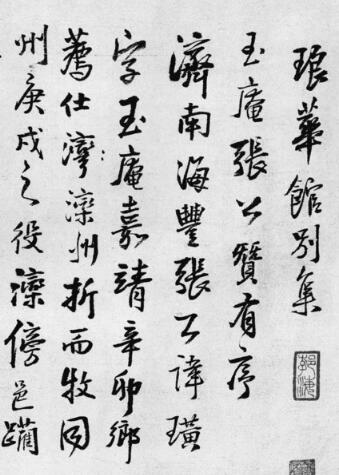 琅華館別集
玉庵張公贊有序
濟南海豐張公諱璜
字玉庵嘉靖辛卯鄉
薦仕灣灤州折而牧同
州庚戌之役灤傍邑躪